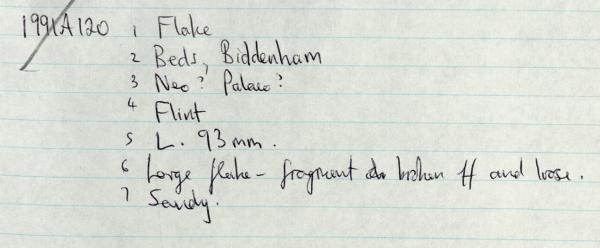 1991A120 1 Flake
2 Beds, Biddenham
3 Neo? Palaeo?
4 Flint
5 L. 93mm.
6 Large flake - fragment broken off and loose.
7 Sandy.